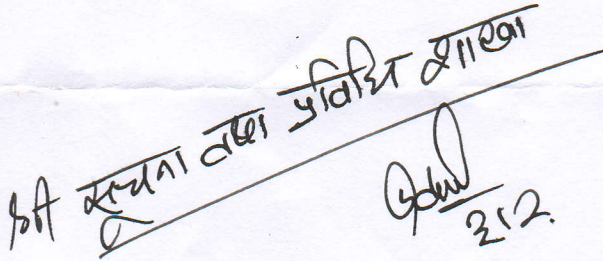 श्री सूचना तथा प्रविधि शाखा
३।२